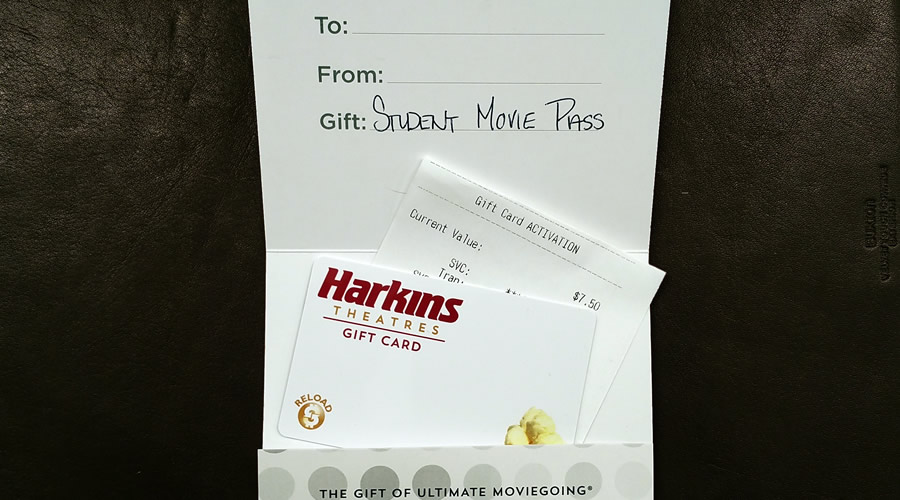 To:
From:
Gift: STUDENT MOVIE PASS
Gift Card ACTIVATION
Current Value:
SVC:
$7.50
Harkins
THEATRES
GIFT CARD
RELOAD
THE GIFT OF ULTIMATE MOVIEGOING®